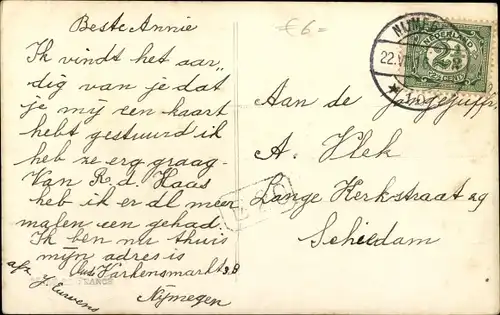 Beste Annie
Ik vindt het aar„
dig van je dat
je mij een kaart
hebt gestuurd ik
heb ze erg graag-
Van R. d. Haas
heb ik er al meer
malen een gehad.
Ik ben nu thuis
mijn adres is
Oude Varkensmarkt
Nijmegen
afz J.
FRANCE
€6=
NIJMEGEN
22.VI
NEDERLAND
2½
CENT
Aan de jongejuffr.
A. Vlek
Lange Kerkstraat
Schiedam